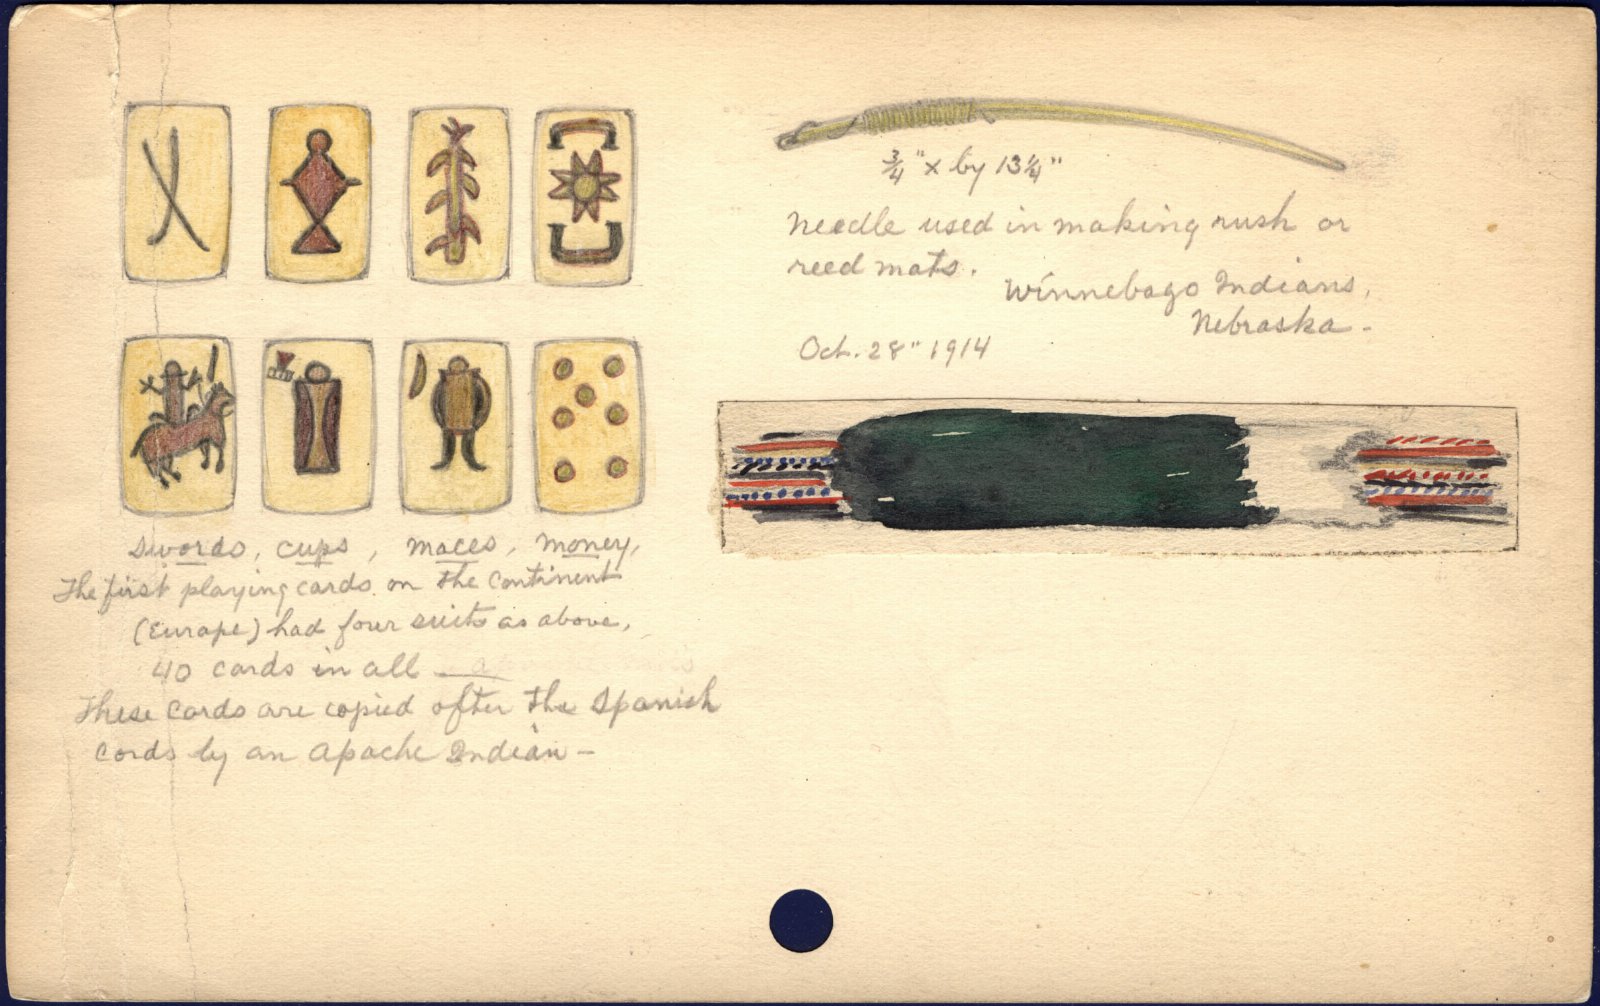 Swords, cups, maces, money,
The first playing cards on the continent
(Europe) had four suits as above,
40 cards in all
These cards are copied after the Spanish
cords by an Apache Indian –
3/4" x by 13 1/4"
Needle used in making rush or
reed mats.
Winnebago Indians,
Nebraska –
Oct. 28" 1914